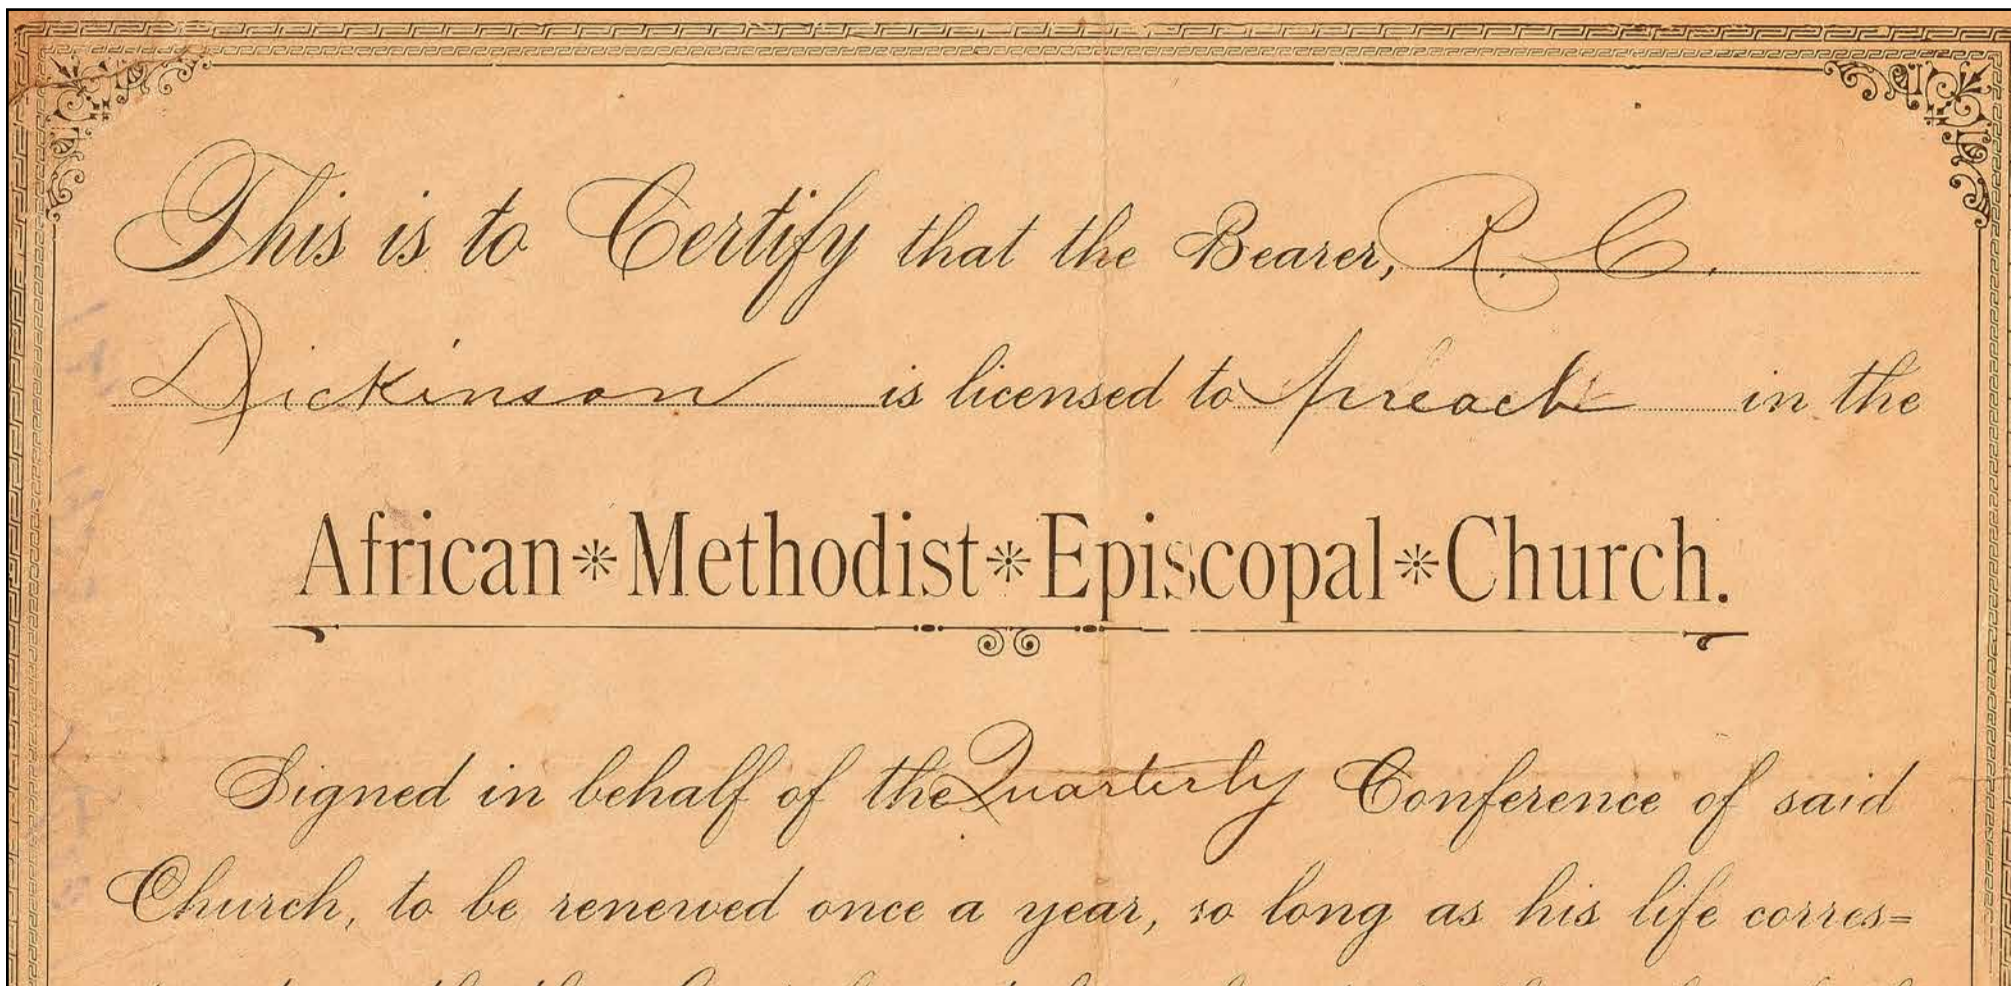 This is to Certify that the Bearer, R. C.
Dickinson is licensed to preach in the
African * Methodist * Episcopal * Church.
Signed in behalf of the Quarterly Conference of said
Church, to be renewed once a year, so long as his life corres=